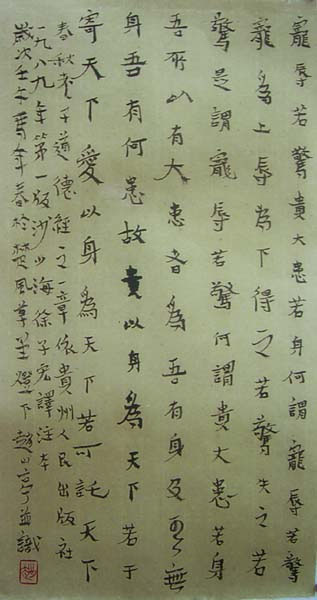 寵辱若驚貴大患若身何謂寵辱若驚
寵為上辱為下得之若驚失之若
驚是謂寵辱若驚何謂貴大患若身
吾所以有大患者為吾有身及吾無
身吾有何患故貴以身為天下若可
寄天下愛以身為天下若可託天下
春秋老子道德經之一章依貴州人民出版社
一九八九年第一版沙少海徐子宏譯注本
歲次壬午馬年春於楚風草堂燈下趙山亭並識